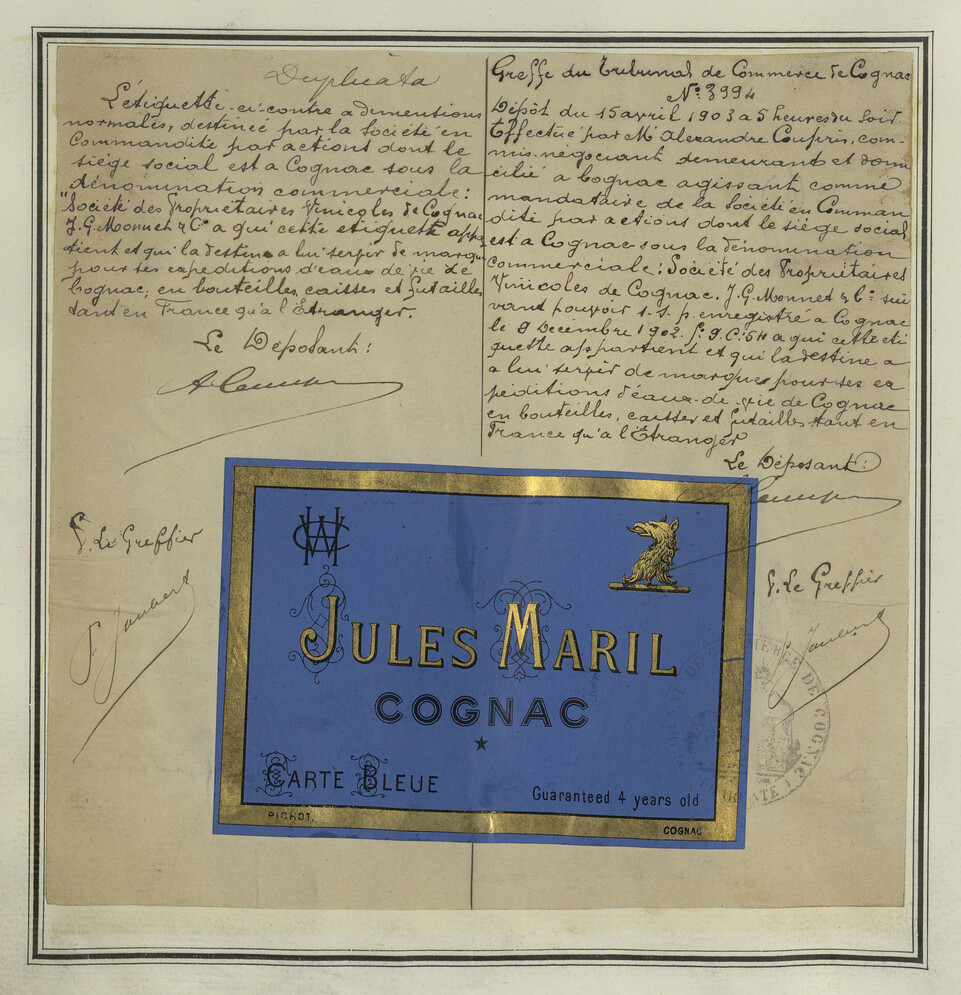 Duplicata
L'étiquette ci-contre a dimentions
normales, destinée par la Société en
Commandite par actions dont le
siége social est a Cognac sous la
dénomination commerciale:
"Société des Propriétaires Vinicoles de Cognac
J. G. Monnet & Cº a qui cette etiquette appar
tient et qui la destine a lui servir de marque
pour ses expeditions d'eaux de vie de
Cognac, en bouteilles, caisses et futailles
tant en France qu'à l'Etranger.
Le Déposant:
Greffe du Tribunal de Commerce de Cognac
Nº 3994
Dépôt du 15 avril 1903 a 5 heures du Soir
Effectué par Mr Alexandre Coupris, com-
mis-négociant demeurant et domi
cilié a Cognac agissant comme
mandataire de la Société en Comman
dite par actions dont le siége social
est a Cognac sous la dénomination
Commerciale: Société des Propriétaires
Vinicoles de Cognac, J. G. Monnet & Cº sui
vant pouvoir s.s.p. enregistré a Cognac
le 9 Decembre 1902. fº 9. Cº 54 a qui cette eti
quette appartient et qui la destine a
a lui servir de marques pour ses ex
peditions d'eaux-de-vie de Cognac
en bouteilles, caisses et futailles tant en
France qu'a l'Etranger
Le Déposant:
P. Le Greffier
P. Le Greffier
JULES MARIL
COGNAC
CARTE BLEUE
Guaranteed 4 years old
PICHOT.
COGNAC